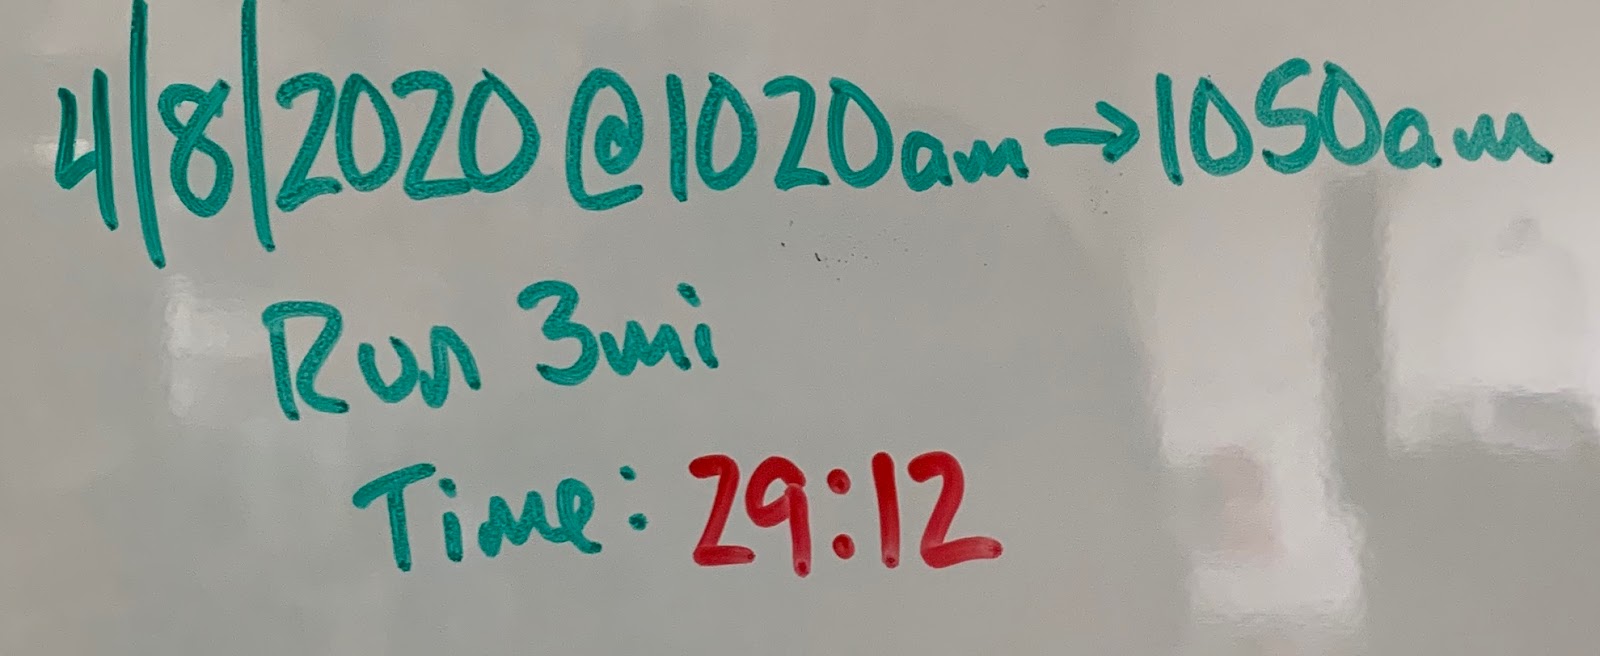 4/8/2020 @ 1020am → 1050am
Run 3mi
Time: 29:12